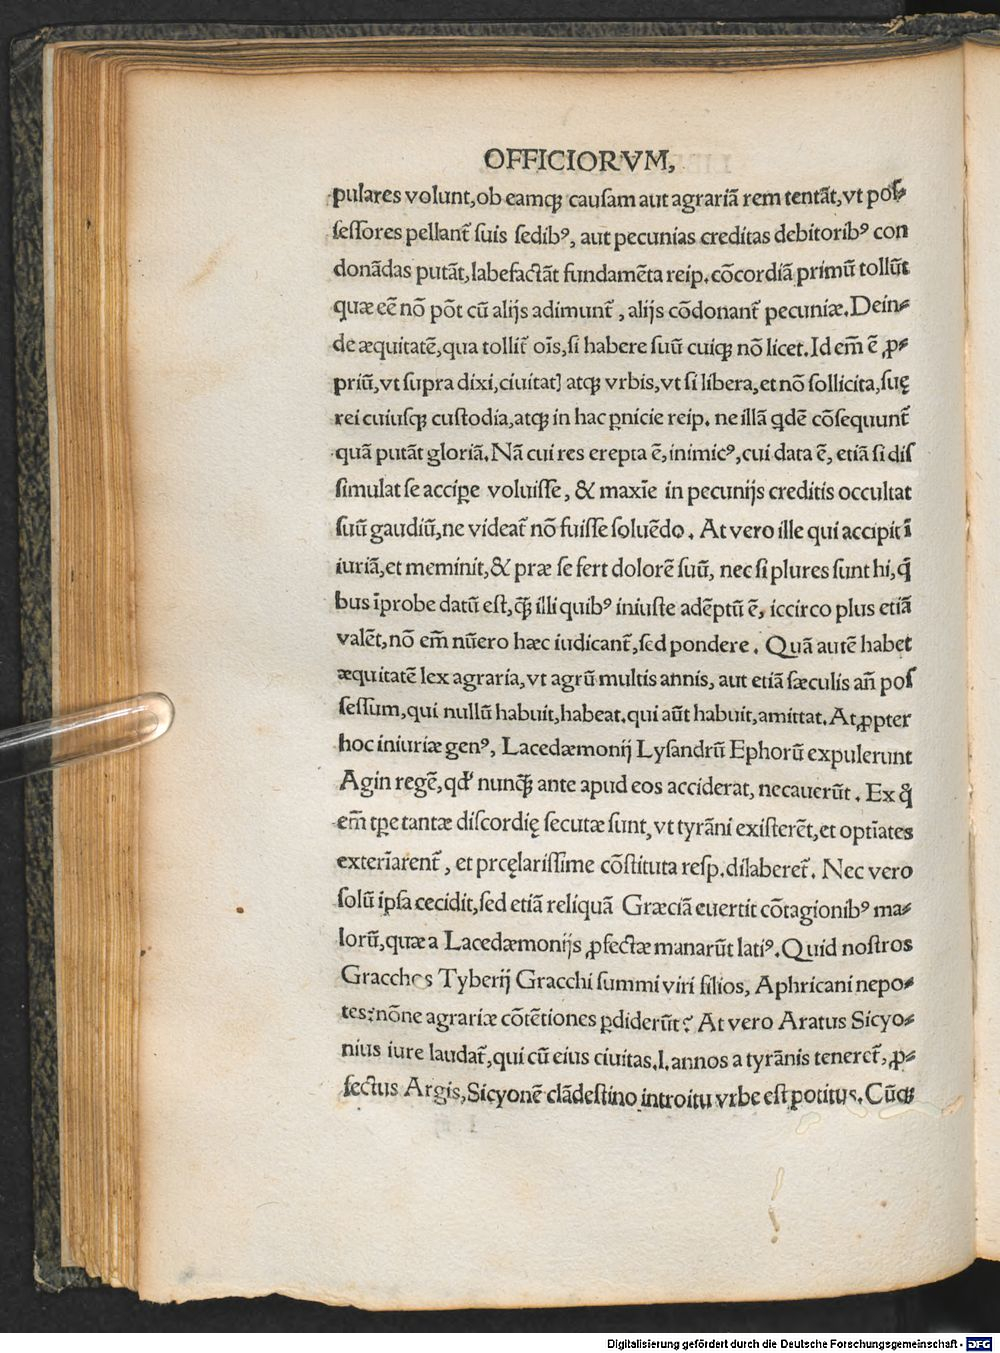 OFFICIORVM,
pulares volunt,ob eamqꝫ causam aut agrariā rem tentāt,vt pos⸗
sessores pellant̄ suis sedibꝰ, aut pecunias creditas debitoribꝰ con
donādas putāt,labefactāt fundamēta reip.cōcordiā primū tollūt
quæ eē nō pōt cū alijs adimunt̄, alijs cōdonant̄ pecuniæ.Dein⸗
de æquitatē,qua tollit̄ oīs,si habere suū cuiqꝫ nō licet.Id em̄ ē ꝓ⸗
priū,vt supra dixi,ciuitatꝭ atqꝫ vrbis,vt si libera,et nō sollicita,suę
rei cuiusqꝫ custodia,atqꝫ in hac ꝑnicie reip. ne illā qdē cōsequunt̄
quā putāt gloriā.Nā cui res erepta ē,inimicꝰ,cui data ē, etiā si dis
simulat se acciꝑe voluisse, & maxīe in pecunijs creditis occultat
suū gaudiū,ne videat̄ nō fuisse soluēdo. At vero ille qui accipit ī
iuriā,et meminit,& præ se fert dolorē suū, nec si plures sunt hi,q̄
bus īprobe datū est,q̄ꝫ illi quibꝰ iniuste adēptū ē, iccirco plus etiā
valēt,nō em̄ nūero hæc iudicant̄,sed pondere. Quā autē habet
æquitatē lex agraria,vt agrū multis annis, aut etiā sæculis an̄ pos
sessum,qui nullū habuit,habeat.qui aūt habuit,amittat.At ꝓpter
hoc iniuriæ genꝰ, Lacedæmonij Lysandrū Ephorū expulerunt
Agin regē,qd' nunq̄ꝫ ante apud eos acciderat, necauerūt. Ex q̄
em̄ tꝑe tantæ discordię secutæ sunt,vt tyrāni existerēt,et optīates
exterīarent̄, et prcęlarissime cōstituta resp.dilaberet̄. Nec vero
solū ip̄sa cecidit,sed etiā reliquā Græciā euertit cōtagionibꝰ ma⸗
lorū,quæ a Lacedæmonijs ꝓfectæ manarūt latiꝰ.Quid nostros
Gracchos Tyberij Gracchi summi viri filios, Aphricani nepo⸗
tes?nōne agrariæ cōtētiones ꝑdiderūt? At vero Aratus Sicyo⸗
nius iure laudat̄,qui cū eius ciuitas.l.annos a tyrānis teneret̄, ꝓ⸗
fectus Argis,Sicyonē clādestino introitu vrbe est potitus.Cūqꝫ
Digitalisierung gefördert durch die Deutsche Forschungsgemeinschaft - DFG